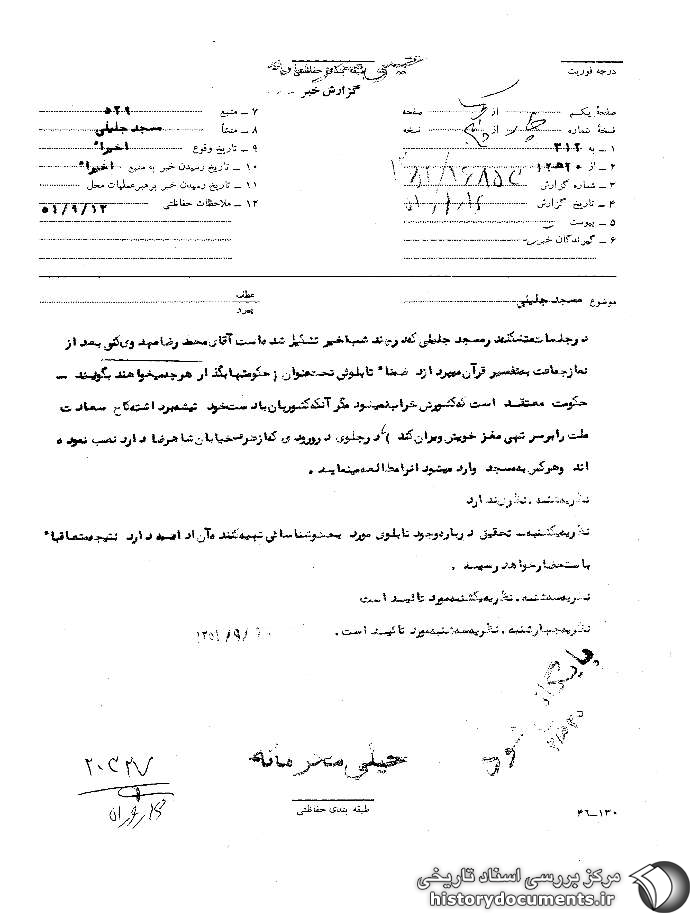 درجه فوریت
طبقه بندی حفاظتی
گزارش خبر
صفحهٔ یکم از صفحه
نسخهٔ شماره چهار از پنج نسخه
۱ ـ به ۳۱۲
۲ ـ از ۲۰ ه‍ ۱۲
۳ ـ شماره گزارش
۴ ـ تاریخ گزارش
۵ ـ پیوست
۶ ـ گیرندگان خبر
۷ ـ منبع ۵۲۹
۸ ـ منشأ مسجد جلیلی
۹ ـ تاریخ وقوع اخیراً
۱۰ ـ تاریخ رسیدن خبر به منبع اخیراً
۱۱ ـ تاریخ رسیدن خبر برهبر عملیات محل
۱۲ ـ ملاحظات حفاظتی ۵۱/۹/۱۲
موضوع مسجد جلیلی
عطف
پیرو
در جلسات متشکله در مسجد جلیلی که در چند شب اخیر تشکیل شده است آقای محمد رضا مهدوی کنی بعد از
نماز جماعت به تفسیر قرآن میپردازد ضمناً تابلوئی تحت عنوان (حکومتها بگذار هر چه میخواهند بگویند ـ
حکومت معتقد است که کشورش خراب نمیشود مگر آنکه کشوریان با دست خود تیشه برداشته کاخ سعادت
ملت را بر سر تهی مغز خویش ویران کند) که در جلوی در ورودی که از طرف خیابان شاهرضا دارد نصب نموده
اند و هر کس به مسجد وارد میشود آنرا مطالعه مینماید .
نظریه شنبه . نظری ندارد
نظریه یکشنبه ـ تحقیق درباره وجود تابلوی مورد بحث و شناسائی تهیه کننده آن ادامه دارد نتیجه متعاقباً
باستحضار خواهد رسید .
نظریه سه شنبه . نظریه یکشنبه مورد تائید است
نظریه چهارشنبه . نظریه سه شنبه مورد تائید است . ۱۳۵۱/۹/۲۰
بایگانی شود
خیلی محرمانه
۲۰۳۲۷
طبقه بندی حفاظتی
۱۳۰-۴۶
مرکز بررسی اسناد تاریخی
historydocuments.ir